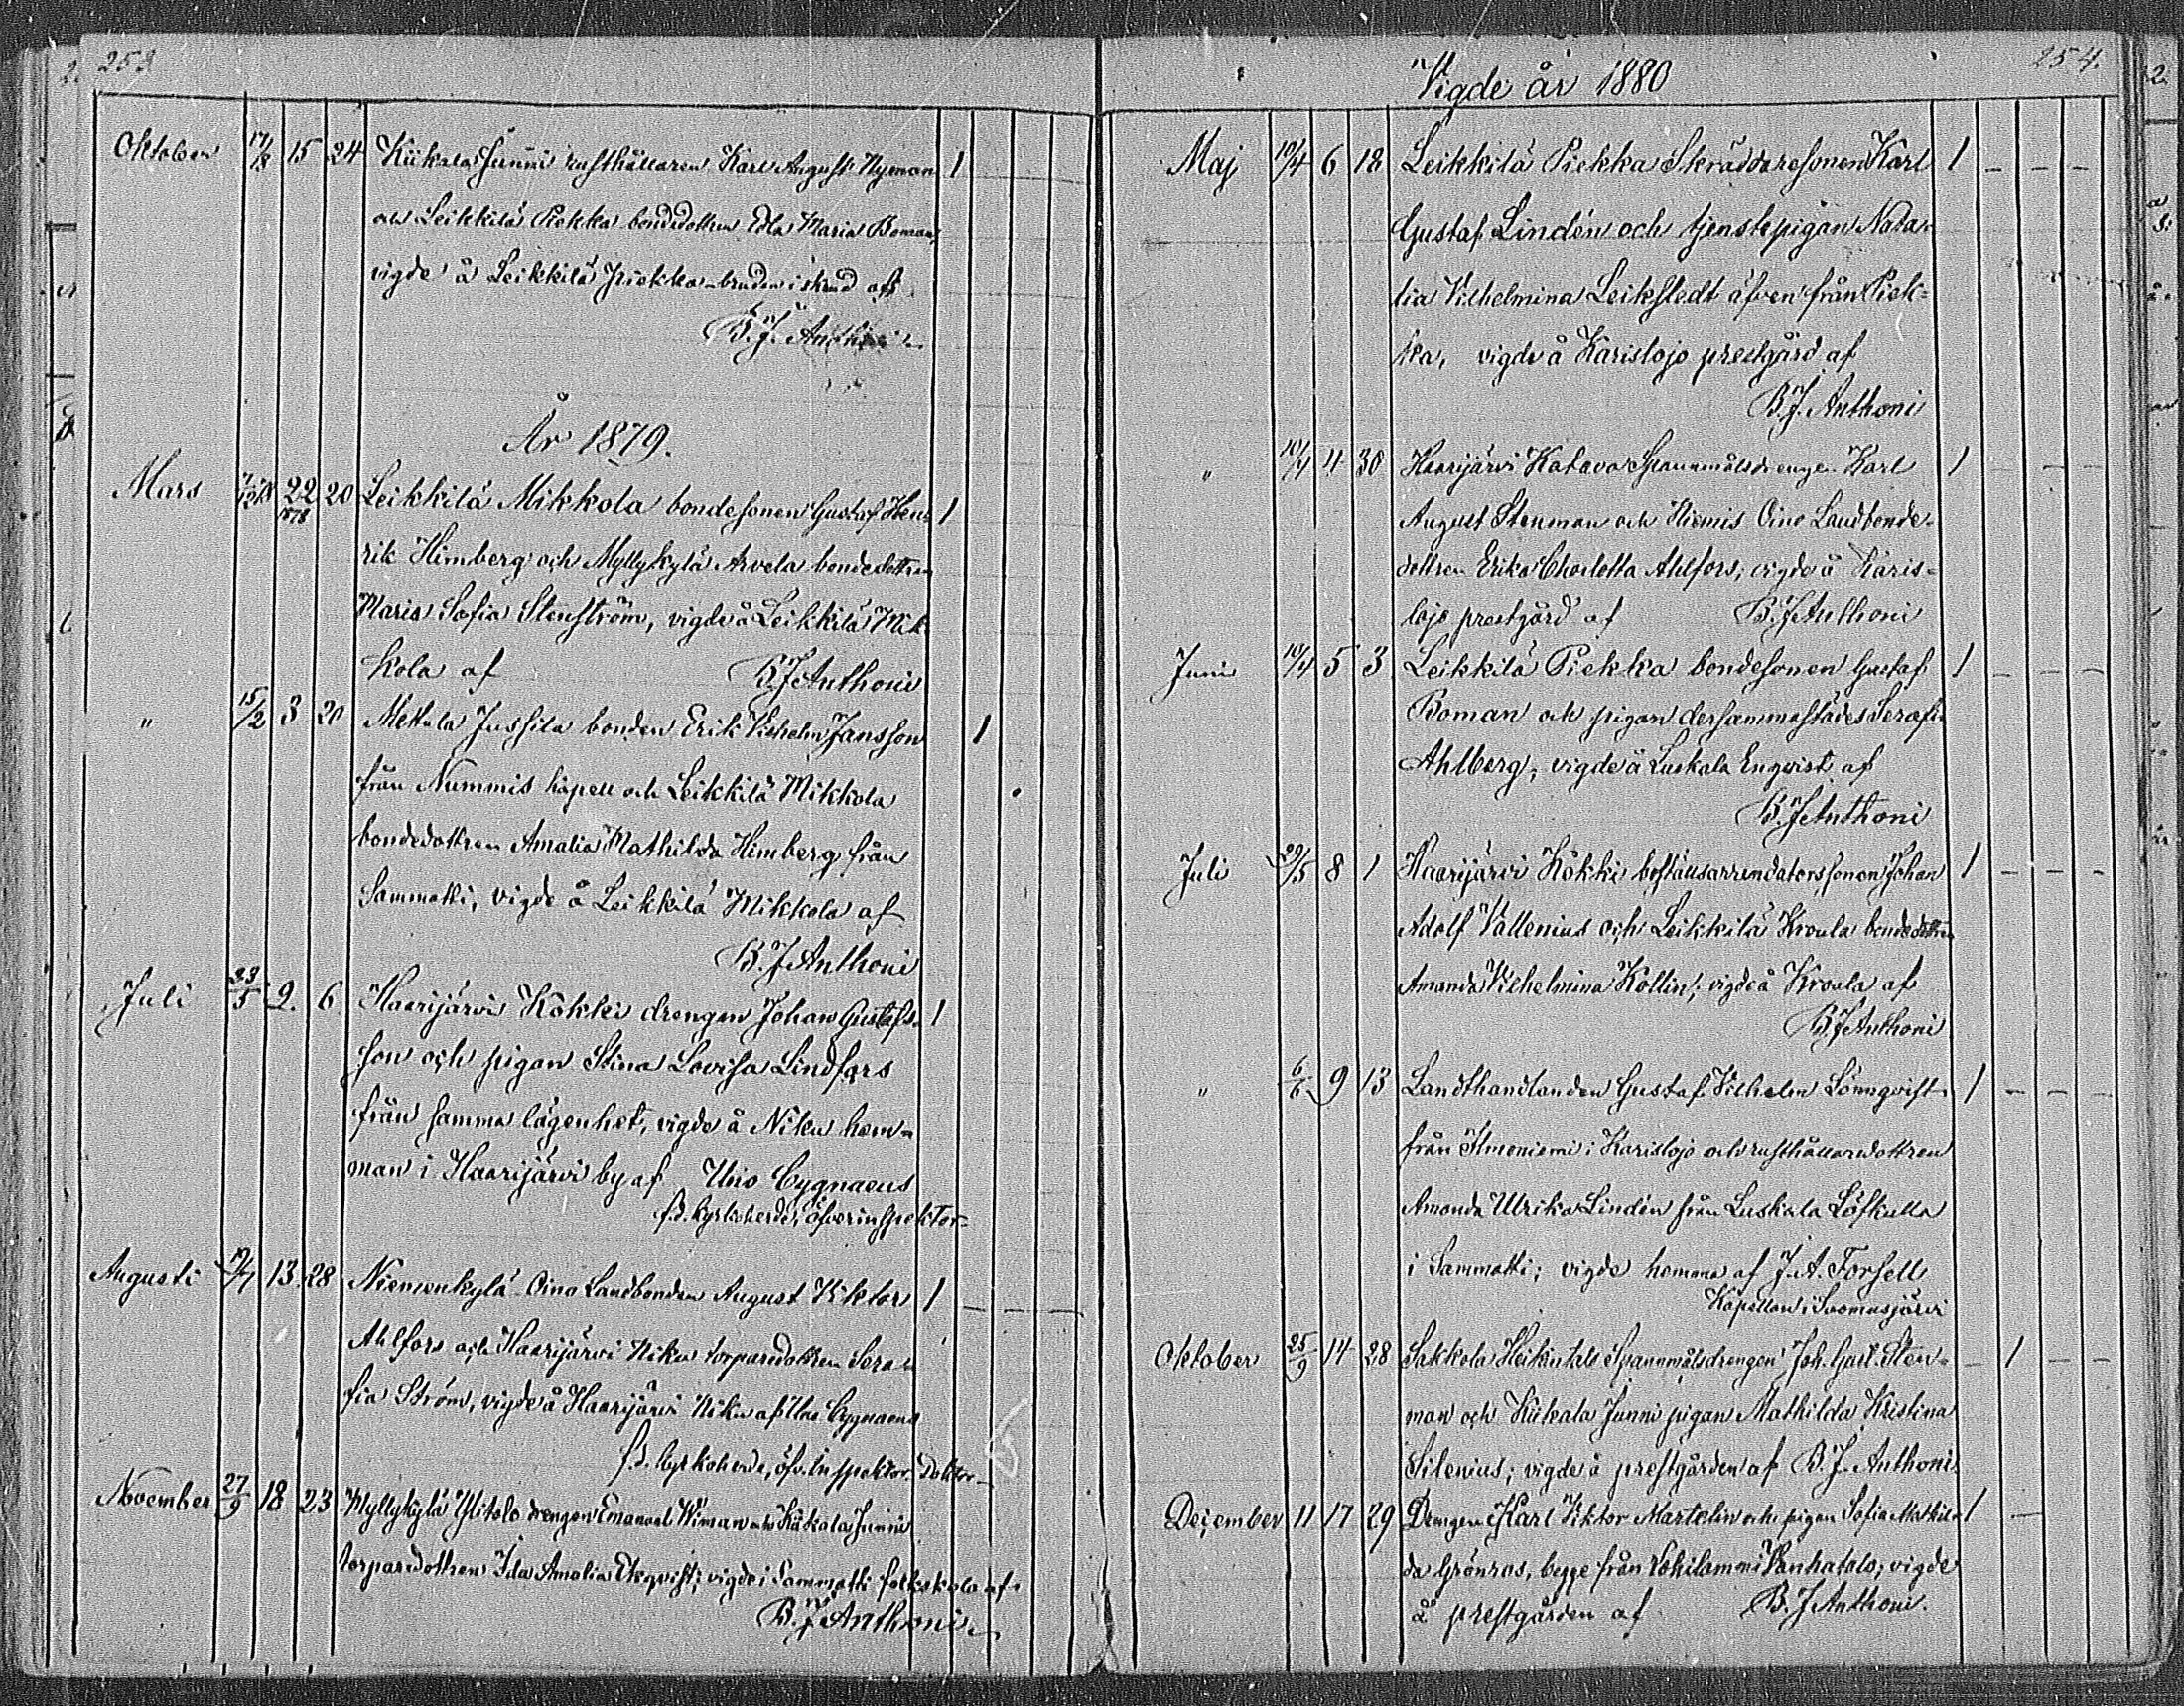 253
Oktober 17/18 15 24 Kiikala Junni rusthållaren Karl August Nyman 1
och Leikkilä Piekka bondedottren Edla Maria Boman,
vigde å Leikkilä Piekka - bruden i skrud af
B. J. Anthoni
År 1879.
Mars 22 1878 20 Leikkilä Mikkola bondesonen Gustaf Hen- 1
rik Himberg och Myllykylä Arvela bondedottren
Maria Sofia Stenström, vigde å Leikkilä Mik-
kola af B J Anthoni
" 15/2 3 20 Mettula Jussila bonden Erik Vilhelm Jansson 1
från Nummis kapell och Leikkilä Mikkola
bondedottren Amalia Mathilda Himberg från
Sammatti, vigde å Leikkilä Mikkola af
B. J Anthoni
Juli 23/5 9. 6. Haarijärvi Kökki drengen Johan Gustafs- 1
son och pigan Stina Lovisa Lindfors
från samma lägenhet, vigde å Niku hem-
man i Haarijärvi by af Uno Cygnaeus
f.d. kyrkoherde, öfverinspektor
Augusti 13 28 Niemenkylä Oino Landbonden August Viktor 1
Ahlfors och Haarijärvi Niku torparedottren Sera-
fia Ström, vigde å Haarijärvi Niku af Uno Cygnaeus
f.d. kyrkoherde, öfv. inspektor. Doktor
November 27/9 18 23 Myllykylä Ylitalo drengen Emanuel Wiman och Kiikala Junni
torparedottren Ida Amalia Ekqvist; vigde i Sammatti folkskola af
B. J Anthoni
Vigde år 1880 254.
Maj 10/4 6 18 Leikkilä Piekka Skräddaresonen Karl 1 - - -
Gustaf Lindén och tjenstepigan Nata-
lia Vilhelmina Leikstedt äfven från Piek-
ka, vigde å Karislojo prestgård af
B. J. Anthoni
" 10/4 4 30 Haarijärvi Katava Spannmålsdrengen Karl 1 - -
August Stenman och Niemis Oino Landbonde-
dottren Erika Charlotta Ahlfors, vigde å Karis-
lojo prestgård af B. J Anthoni
Juni 10/4 5 3 Leikkilä Piekka bondesonen Gustaf 1 - - -
Boman och pigan dersammastädes Serafia
Ahlberg, vigde å Luskala Enqvist af
B. J Anthoni
Juli 29/5 8 1 Haarijärvi Kökki boställsarrendatorssonen Johan 1 - - -
Adolf Vallenius och Leikkilä Kroula bondedottren
Amanda Vilhelmina Kollin; vigde å Kroula af
B. J Anthoni
" 6/6 9 13 Landthandlanden Gustaf Vilhelm Lönnqvist 1 - - -
från Ilmoniemi i Karislojo och rusthållaredottren
Amanda Ulrika Lindén från Luskala Löfkulla
i Sammatti; vigde hemma af J. A. Forsell
Kapellan i Suomusjärvi
Oktober 25/9 14 28 Sakkola Heikutals Spannmålsdrengen Joh. Gust. Sten- - 1 - -
man och Kiikala Junni pigan Mathilda Kristina
Silenius; vigde å prestgården af B. J. Anthoni
December 11 17 29 Drengen Karl Viktor Martelin och pigan Sofia Mathil- 1 -
da Grönroos, begge från Lohilammi Vanhatalo; vigde
å prestgården af B. J Anthoni.